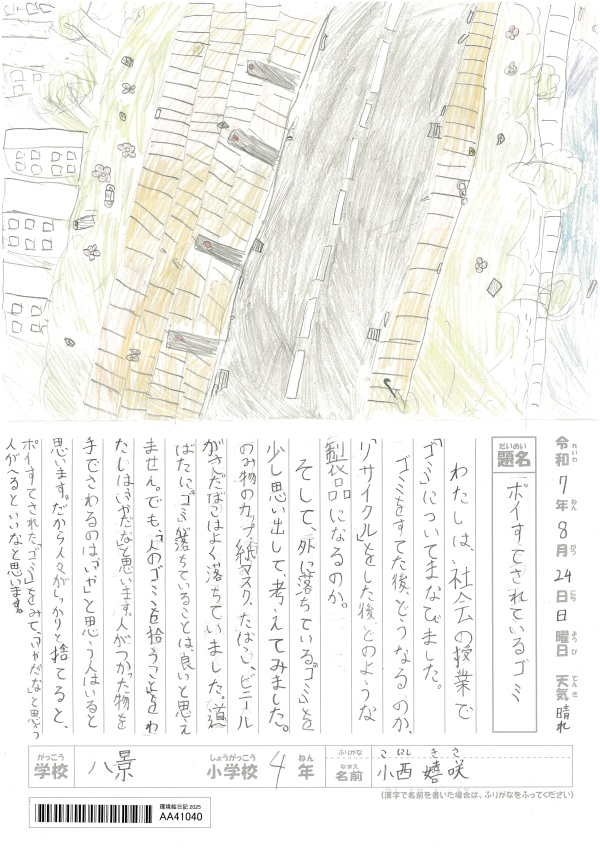 令和7年8月24日日曜日 天気 晴れ
れいわ ねん がつ にち ようび てんき
だいめい
題名
ポイすてされているゴミ
わたしは、社会の授業で
「ゴミ」についてまなびました。
ゴミをすてた後、どうなるのか、
「リサイクル」をした後、どのような
製品になるのか。
そして、外に落ちている「ゴミ」を
少し思い出して、考えてみました。
のみ物のカップ、紙、マスク、たばこ、ビニール
がさ、たばこはよく落ちていました。道
ばたに「ゴミ」が落ちていることは良いと思え
ません。でも、「人のゴミを拾うこと」を、わ
たしは「いやだな」と思います。人がつかった物を
手でさわるのは、「いや」と思う人はいると
思います。だから人々がしっかりと捨てると、
ポイすてされた「ゴミ」をみて、「いやだな」と思う
人がへるといいなと思います。
がっこう
学校
八景
しょうがっこう
小学校
4
ねん
年
ふりがな
こにし きさ
なまえ
名前
小西 嬉咲
(漢字で名前を書いた場合は、ふりがなをふってください)
環境絵日記 2025
AA41040